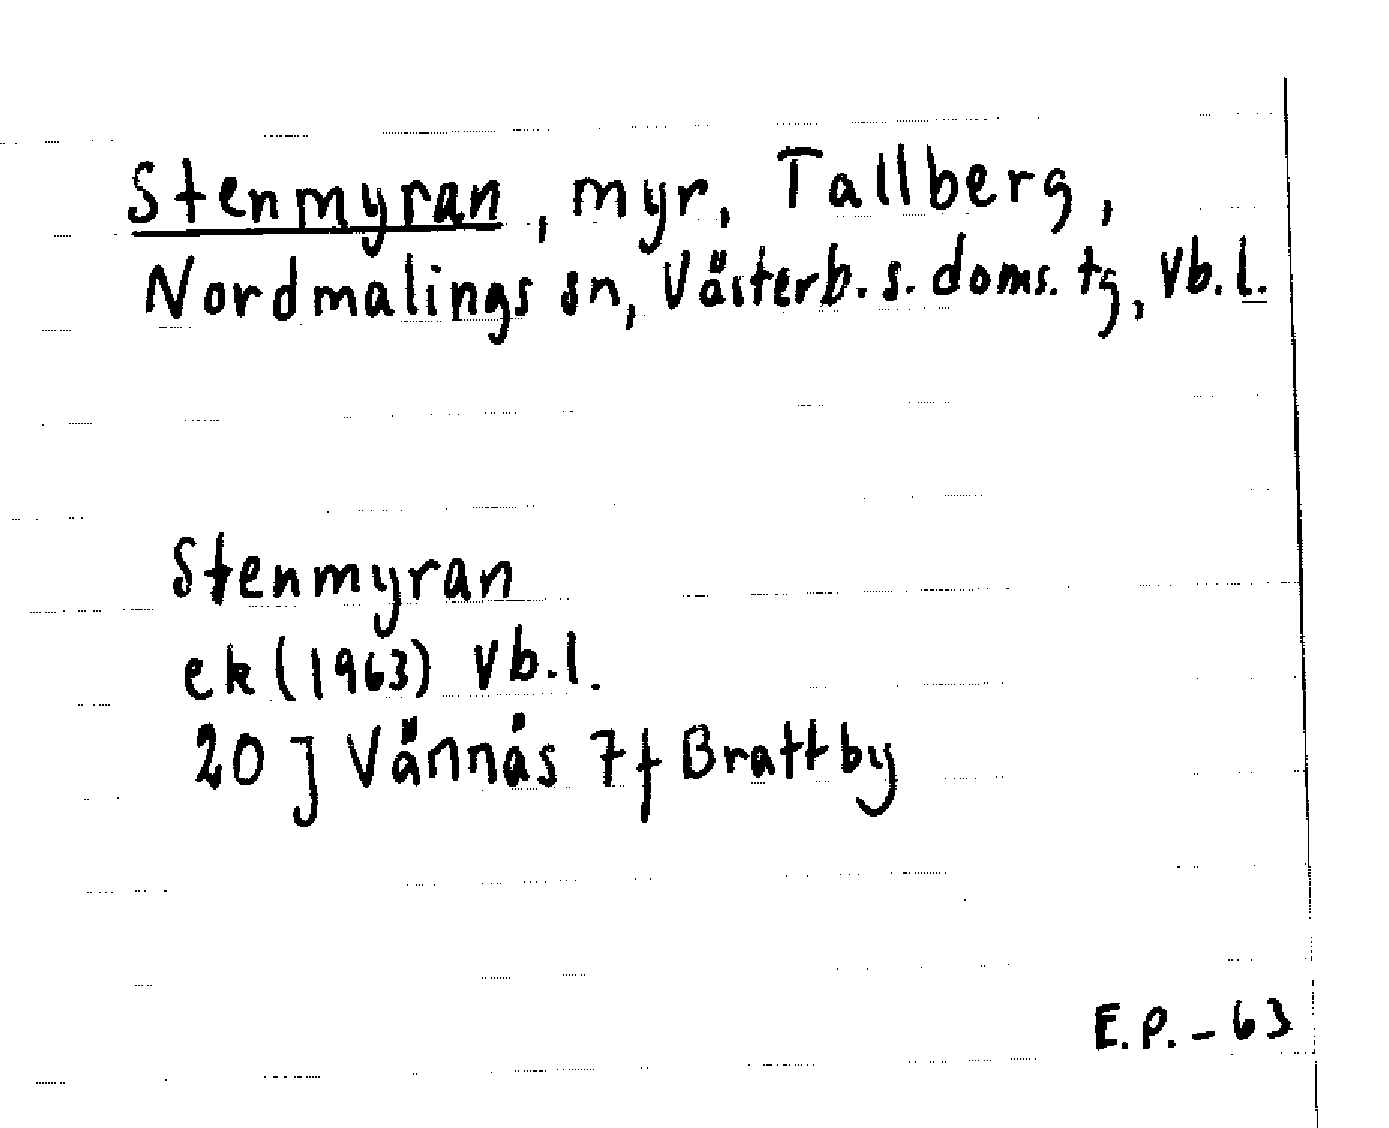 Stenmyran, myr, Tallberg,
Nordmalings sn, Västerb. s. doms. tg, Vb. l.
Stenmyran
ek (1963) Vb. l.
20 J Vännäs 7f Brattby
E.P. - 63